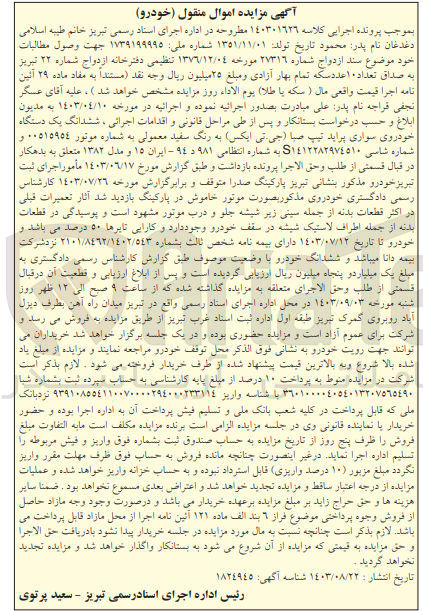 آگهی مزایده اموال منقول (خودرو)
بموجب پرونده اجرایی کلاسه ۱۴۰۳۰۱۶۲۶ مطروحه در اداره اجرای اسناد رسمی تبریز خانم طیبه اسلامی
دغدغان نام پدر: محمود تاریخ تولد: ۱۳۵۱/۱۱/۰۱ شماره ملی: ۱۷۳۹۱۹۹۹۹۵ جهت وصول مطالبات
خود موضوع سند ازدواج شماره ۲۷۳۱۶ مورخه ۱۳۷۶/۱۲/۰۴ تنظیمی دفترخانه ازدواج شماره ۲۲ تبریز
به صداق تعداد۱۰عددسکه تمام بهار آزادی ومبلغ ۲۵میلیون ریال وجه نقد (مستنداً به مفاد ماده ۲۹ آئین
نامه اجرا قیمت واقعی مال ( سکه یا طلا) یوم الاداء روز مزایده مشخص خواهد شد ) ، علیه آقای عسگر
نجفی قراجه نام پدر: علی مبادرت بصدور اجرائیه نموده و اجرائیه در مورخه ۱۴۰۳/۰۴/۱۰ به مدیون
ابلاغ و حسب درخواست بستانکار و پس از طی مراحل قانونی و اقدامات اجرائی ، ششدانگ یک دستگاه
خودروی سواری پراید تیپ صبا (جی.تی ایکس) به رنگ سفید معمولی به شماره موتور ۰۰۵۱۵۹۵۴ و
شماره شاسی S۱۴۱۲۲۸۲۹۷۴۵۱۰ به شماره انتظامی ۹۸۱ د ۹۴ - ایران ۱۵ و مدل ۱۳۸۲ متعلق به بدهکار
در قبال قسمتی از طلب وحق الاجرا پرونده بازداشت و طبق گزارش مورخ ۱۴۰۳/۰۶/۱۷ مأموراجرای ثبت
تبریزخودرو مذکور بنشانی تبریز پارکینگ صدرا متوقف و برابرگزارش مورخه ۱۴۰۳/۰۷/۲۶ کارشناس
رسمی دادگستری خودروی مذکوربصورت موتور خاموش در پارکینگ بازدید شد آثار تعمیرات قبلی
در اکثر قطعات بدنه از جمله سینی زیر شیشه جلو و درب موتور مشهود است و پوسیدگی در قطعات
بدنه از جمله اطراف لاستیک شیشه در سقف خودرو وجوددارد و کارایی تایرها ۵۰ درصد می باشد و
خودرو تا تاریخ ۱۴۰۳/۰۷/۱۲ دارای بیمه نامه شخص ثالث بشماره ۲۱۰۱/۸۴۶۲/۱۴۰۲/۵۴۳ نزدشرکت
بیمه دانا میباشد و ششدانگ خودرو با وضعیت موصوف طبق گزارش کارشناس رسمی دادگستری به
مبلغ یک میلیاردو پنجاه میلیون ریال ارزیابی گردیده است و پس از ابلاغ ارزیابی و قطعیت آن درقبال
قسمتی از طلب وحق الاجرای متعلقه به مزایده گذاشته شده که از ساعت ۹ صبح الی ۱۲ ظهر روز
شنبه مورخه ۱۴۰۳/۰۹/۰۳ در محل اداره اجرای اسناد رسمی واقع در تبریز میدان راه آهن بطرف دیزل
آباد روبروی گمرک تبریز طبقه اول اداره ثبت اسناد غرب تبریز از طریق مزایده به فروش می رسد و
شرکت برای عموم آزاد است و مزایده حضوری بوده و در یک جلسه برگزار خواهد شد خریداران می
توانند جهت رویت خودرو به نشانی فوق الذکر محل توقف خودرو مراجعه نمایند و مزایده از مبلغ یاد
شده بالا شروع وبه بالاترین قیمت پیشنهاد شده از طرف خریدار فروخته می شود . لازم بذکر است
شرکت در مزایده منوط به پرداخت ۱۰ درصد از مبلغ پایه کارشناسی به حساب سپرده ثبت بشماره شبا
با شناسه واریز نزدبانک
ملی که قابل پرداخت در کلیه شعب بانک ملی و تسلیم فیش پرداخت آن به اداره اجرا بوده و حضور
خریدار یا نماینده قانونی وی در جلسه مزایده الزامی است برنده مزایده مکلف است مابه التفاوت مبلغ
فروش را ظرف پنج روز از تاریخ مزایده به حساب صندوق ثبت بشماره فوق واریز و فیش مربوطه را
تسلیم اداره اجرا نماید. درغیر اینصورت چنانچه مانده فروش به حساب فوق ظرف مهلت مقرر واریز
نگردد مبلغ مزبور (۱۰ درصد واریزی) قابل استرداد نبوده و به حساب خزانه واریز خواهد شد و عملیات
مزایده از درجه اعتبار ساقط و مزایده تجدید خواهد شد و اعتراض بعدی مسموع نخواهد بود . ضمنا سایر
هزینه ها و حق حراج زاید بر مبلغ مزایده برعهده خریدار می باشد و درصورت وجود وجه مازاد حاصل
از فروش وجوه پرداختی موضوع فراز ۶ بند الف ماده ۱۲۱ آئین نامه اجرا از محل مازاد قابل پرداخت می
باشد. لازم بذکر است چنانچه نسبت به مال مورد مزایده در جلسه خریدار پیدا نشود بادریافت حق الاجرا
و حق مزایده به قیمتی که مزایده از آن شروع می شود به بستانکار واگذار خواهد شد و مزایده تجدید
نخواهد گردید .
تاریخ انتشار : ۱۴۰۳/۰۸/۲۲ شناسه آگهی: ۱۸۲۴۹۴۵
رئیس اداره اجرای اسنادرسمی تبریز - سعید پرتوی